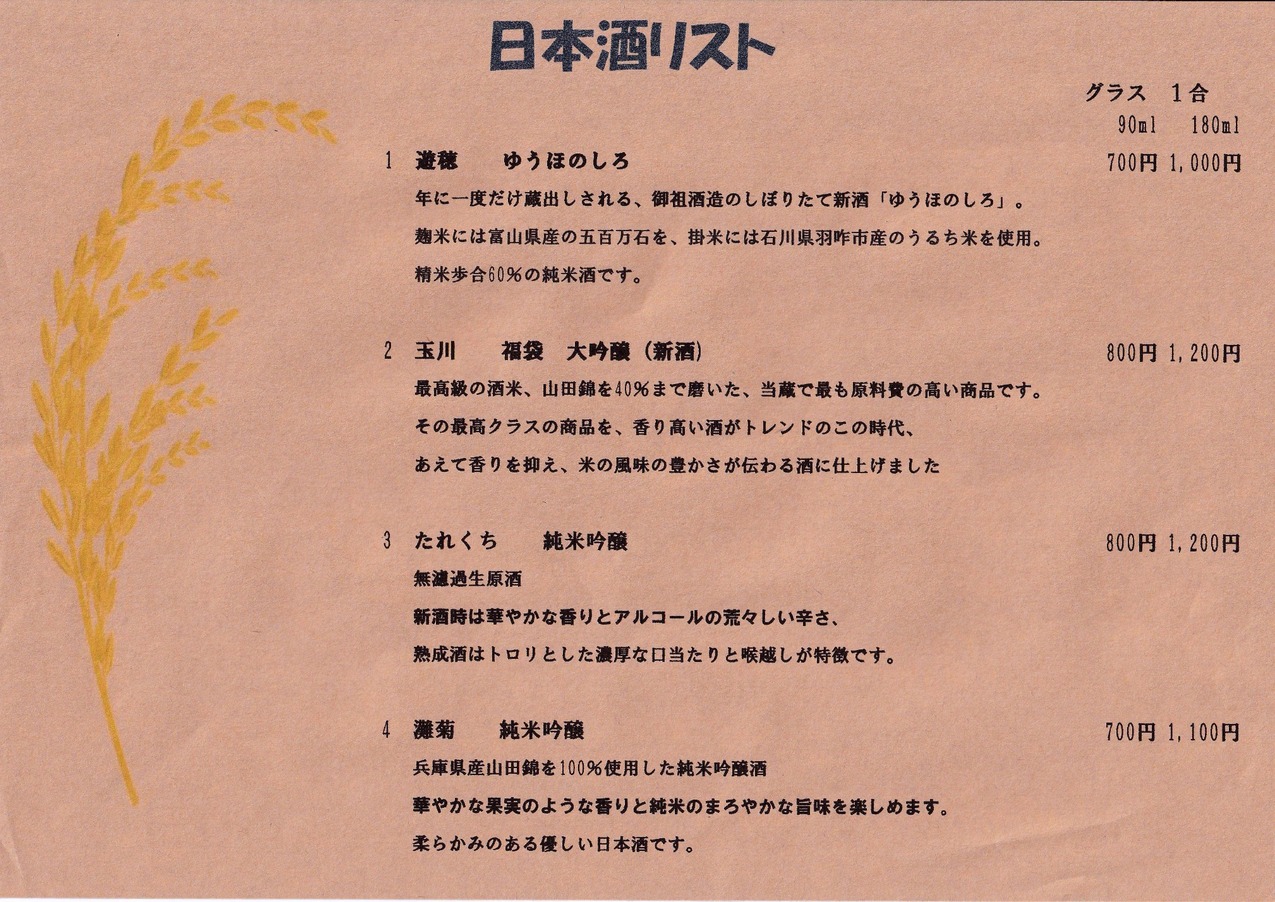 日本酒リスト
グラス 1合
90ml 180ml
1 遊穂 ゆうほのしろ 700円 1,000円
年に一度だけ蔵出しされる、御祖酒造のしぼりたて新酒「ゆうほのしろ」。
麹米には富山県産の五百万石を、掛米には石川県羽咋市産のうるち米を使用。
精米歩合60%の純米酒です。
2 玉川 福袋 大吟醸（新酒） 800円 1,200円
最高級の酒米、山田錦を40%まで磨いた、当蔵で最も原料費の高い商品です。
その最高クラスの商品を、香り高い酒がトレンドのこの時代、
あえて香りを抑え、米の風味の豊かさが伝わる酒に仕上げました
3 たれくち 純米吟醸 800円 1,200円
無濾過生原酒
新酒時は華やかな香りとアルコールの荒々しい辛さ、
熟成酒はトロリとした濃厚な口当たりと喉越しが特徴です。
4 灘菊 純米吟醸 700円 1,100円
兵庫県産山田錦を100%使用した純米吟醸酒
華やかな果実のような香りと純米のまろやかな旨味を楽しめます。
柔らかみのある優しい日本酒です。